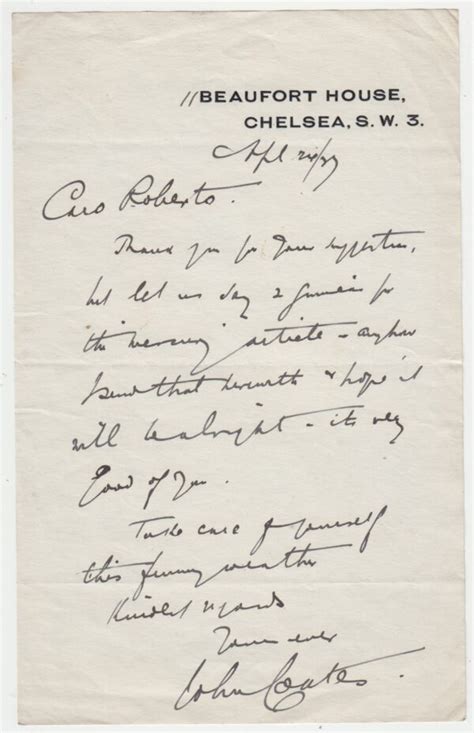 11 BEAUFORT HOUSE,
CHELSEA, S.W. 3.
Apl 24/29
Caro Roberto.
Thank you for your suggestion,
but let us say 2 Guineas for
this Mercury article - anyhow
I send that herewith & hope it
will be alright - its very
good of you.
Take care of yourself
this funny weather
Kindest regards
Yours ever
John Coates.